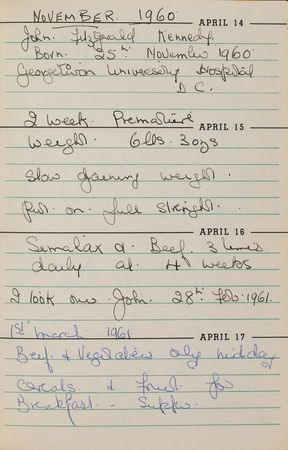 NOVEMBER. 1960.
APRIL 14
John. Fitzgerald Kennedy.
Born. 25th. November 1960.
Georgetown University Hospital
D.C.
2 weeks. Premature
APRIL 15
weight. 6 lbs. 3 ozs
Slow gaining weight.
Put. on. full strength.
APRIL 16
Similax & Beef. 3 times
daily at. 4 weeks
I took over. John. 28th. Feb. 1961.
1st march 1961
APRIL 17
Beef & Vegetables only midday
cereals & fruit for
Breakfast. - Supper.